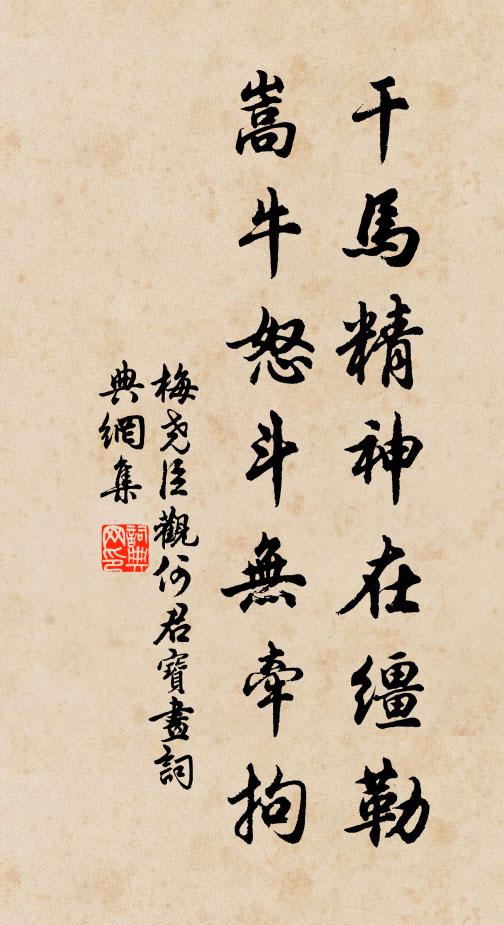 干馬精神在繮勒
嵩牛怒斗無牽拘
梅堯臣觀何君寶畫詞
典網集
詞典
网印